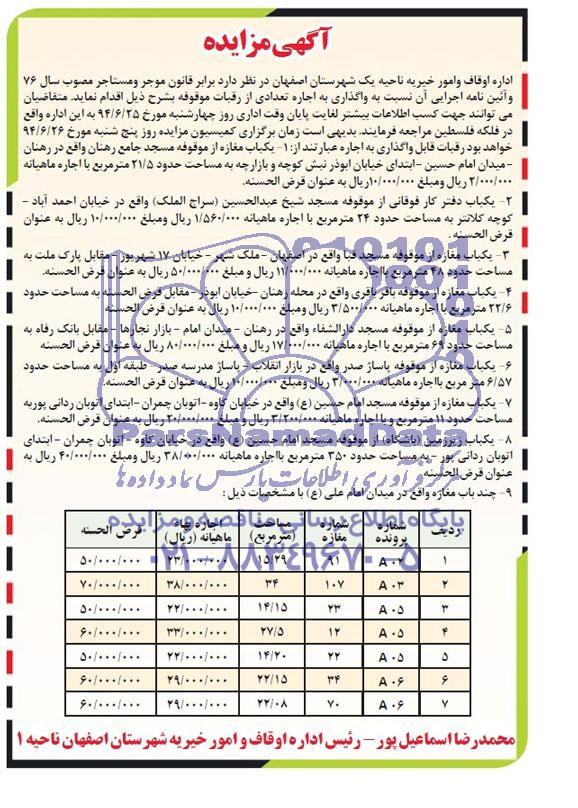 آگهی مزایده
اداره اوقاف وامور خیریه ناحیه یک شهرستان اصفهان در نظر دارد برابر قانون موجر ومستاجر مصوب سال ۷۶
وآئین نامه اجرایی آن نسبت به واگذاری به اجاره تعدادی از رقبات موقوفه بشرح ذیل اقدام نماید. متقاضیان
می توانند جهت کسب اطلاعات بیشتر لغایت پایان وقت اداری روز چهارشنبه مورخ ۹۴/۶/۲۵ به این اداره واقع
در فلکه فلسطین مراجعه فرمایند. بدیهی است زمان برگزاری کمیسیون مزایده روز پنج شنبه مورخ ۹۴/۶/۲۶
خواهد بود رقبات قابل واگذاری به اجاره عبارتند از: ۱- یکباب مغازه از موقوفه مسجد جامع رهنان واقع در رهنان
-میدان امام حسین -ابتدای خیابان ابوذر نبش کوچه و بازارچه به مساحت حدود ۲۱/۵ مترمربع با اجاره ماهیانه
۲/۰۰۰/۰۰۰ ریال ومبلغ ۱۰/۰۰۰/۰۰۰ریال به عنوان قرض الحسنه.
۲- یکباب دفتر کار فوقانی از موقوفه مسجد شیخ عبدالحسین (سراج الملک) واقع در خیابان احمد آباد -
کوچه کلانتر به مساحت حدود ۲۴ مترمربع با اجاره ماهیانه ۱/۵۶۰/۰۰۰ ریال ومبلغ ۱۰/۰۰۰/۰۰۰ ریال به عنوان
قرض الحسنه.
۳- یکباب مغازه از موقوفه مسجد قبا واقع در اصفهان - ملک شهر - خیابان ۱۷ شهریور - مقابل پارک ملت به
مساحت حدود ۴۸ مترمربع بااجاره ماهیانه ۱۱/۰۰۰/۰۰۰ ریال و مبلغ ۵۰/۰۰۰/۰۰۰ ریال به عنوان قرض الحسنه.
۴- یکباب مغازه از موقوفه باقر باقری واقع در محله رهنان -خیابان ابوذر - مقابل قرض الحسنه به مساحت حدود
۲۲/۶ مترمربع با اجاره ماهیانه ۳/۵۰۰/۰۰۰ ریال ومبلغ ۱۰/۰۰۰/۰۰۰ ریال به عنوان قرض الحسنه
۵- یکباب مغازه از موقوفه مسجد دارالشفاء واقع در رهنان - میدان امام - بازار نجارها - مقابل بانک رفاه به
مساحت حدود ۶۹ مترمربع بااجاره ماهیانه ۱۷/۰۰۰/۰۰۰ ریال و مبلغ ۸۰/۰۰۰/۰۰۰ ریال به عنوان قرض الحسنه
۶- یکباب مغازه از موقوفه پاساژ صدر واقع در بازار انقلاب - پاساژ مدرسه صدر - طبقه اول به مساحت حدود
۶/۵۷ متر مربع بااجاره ماهیانه ۳/۰۰۰/۰۰۰ ریال و مبلغ ۱۰/۰۰۰/۰۰۰ ریال به عنوان قرض الحسنه.
۷- یکباب مغازه از موقوفه مسجد امام حسین (ع) واقع در خیابان کاوه -اتوبان چمران -ابتدای اتوبان ردانی پوربه
مساحت حدود ۱۱ مترمربع و با اجاره ماهیانه ۳/۲۰۰/۰۰۰ ریال و مبلغ ۲۰/۰۰۰/۰۰۰ ریال به عنوان قرض الحسنه.
۸- یکباب زیرزمین (باشگاه) از موقوفه مسجد امام حسین (ع) واقع در خیابان کاوه - اتوبان چمران - ابتدای
اتوبان ردانی پور - به مساحت حدود ۳۵۰ مترمربع بااجاره ماهیانه ۳۸/۰۰۰/۰۰۰ ریال و مبلغ ۴۰/۰۰۰/۰۰۰ ریال به
عنوان قرض الحسنه
۹- چند باب مغازه واقع در میدان امام علی (ع) با مشخصات ذیل :
ParsNamad Data
مرکز فرآوری اطلاعات پارس نماد داده ها
پایگاه اطلاع رسانی مناقصه و مزایده
۰۲۱-۸۸۳۴۹۶۷۰-۵
ردیف شماره پرونده شماره مغازه مساحت (مترمربع) اجاره بهاء ماهیانه (ریال) قرض الحسنه
۱ A۰۲ ۹۱ ۱۵/۲۹ ۲۳/۰۰۰/۰۰۰ ۵۰/۰۰۰/۰۰۰
۲ A۰۳ ۱۰۷ ۳۴ ۳۸/۰۰۰/۰۰۰ ۷۰/۰۰۰/۰۰۰
۳ A۰۵ ۲۳ ۱۴/۱۵ ۲۲/۰۰۰/۰۰۰ ۵۰/۰۰۰/۰۰۰
۴ A۰۵ ۱۲ ۲۷/۵ ۳۳/۰۰۰/۰۰۰ ۶۰/۰۰۰/۰۰۰
۵ A۰۵ ۲۲ ۱۴/۲۰ ۲۲/۰۰۰/۰۰۰ ۵۰/۰۰۰/۰۰۰
۶ A۰۶ ۳۴ ۲۲/۱۵ ۲۹/۰۰۰/۰۰۰ ۶۰/۰۰۰/۰۰۰
۷ A۰۶ ۷۰ ۲۲/۰۸ ۲۹/۰۰۰/۰۰۰ ۶۰/۰۰۰/۰۰۰
محمدرضا اسماعیل پور - رئیس اداره اوقاف و امور خیریه شهرستان اصفهان ناحیه ۱